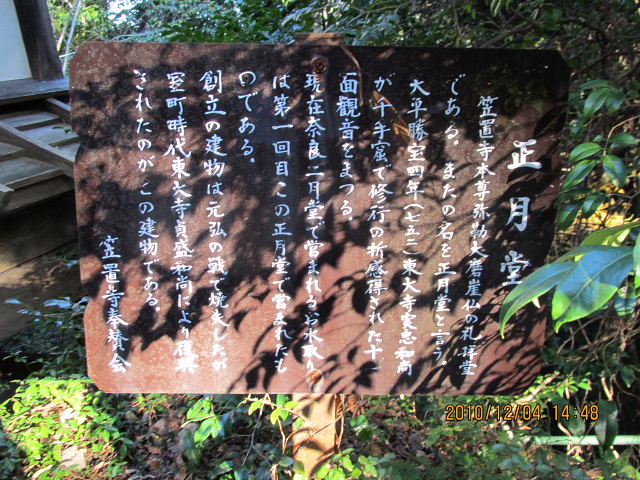 正月堂
笠置寺本尊弥勒大磨崖仏の礼拝堂
である。またの名を正月堂と言う。
大平勝宝四年(七五二)東大寺実忠和尚
が千手窟で修行の折感得された十一
面観音をまつる。
現在奈良二月堂で営まれるお水取り
は第一回目この正月堂で営まれたも
のである。
創立の建物は元弘の戦で焼失したが
室町時代東大寺貞盛和尚により復興
されたのがこの建物である。
笠置寺奉賛会
2010/12/04 14:48